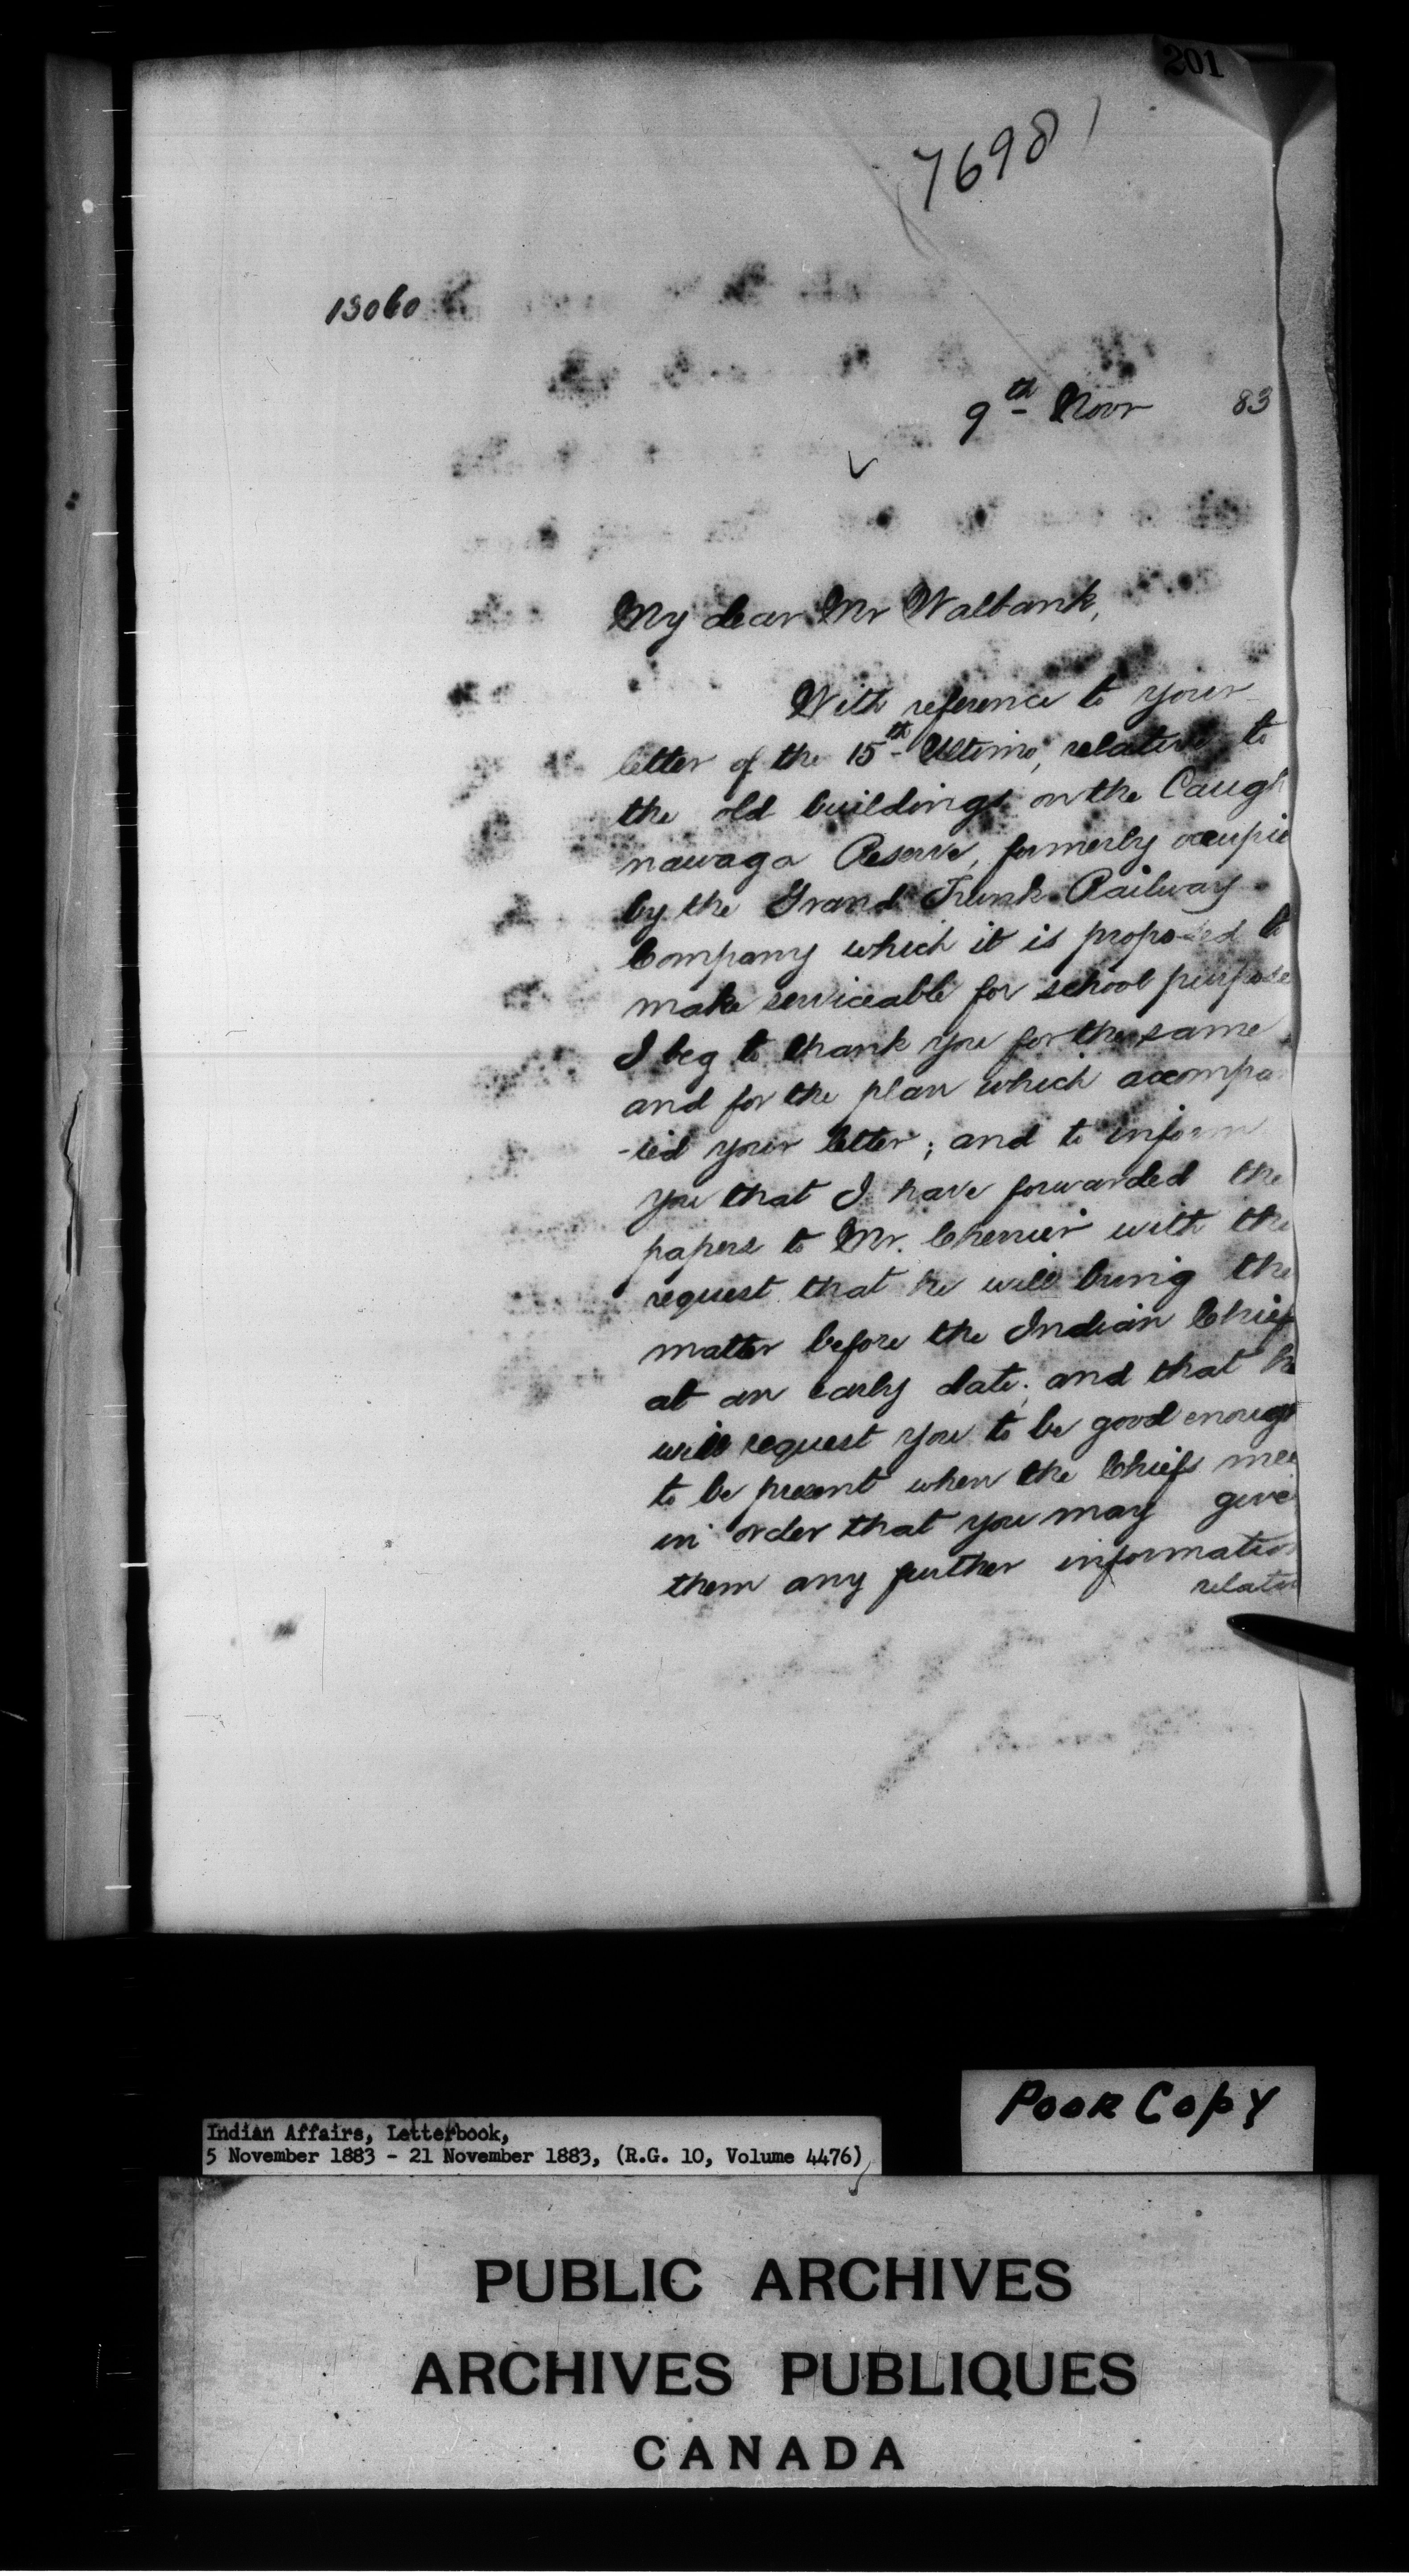 201
7698
13060
9th Novr 83
My dear Mr Walbank,
With reference to your
letter of the 15th Ultimo, relative to
the old buildings on the Caugh
nawaga Reserve, formerly occupie
by the Grand Trunk Railway
Company which it is proposed to
make serviceable for school purpose
I beg to thank you for the same
and for the plan which accompa
-ied your letter; and to inform
you that I have forwarded the
papers to Mr. Cherrier with the
request that he will bring the
matter before the Indian Chief
at an early date; and that he
will request you to be good enough
to be present when the Chiefs mee
in order that you may give
them any further informatio
relati
Poor Copy
Indian Affairs, Letterbook,
5 November 1883 - 21 November 1883, (R.G. 10, Volume 4476)
PUBLIC ARCHIVES
ARCHIVES PUBLIQUES
CANADA